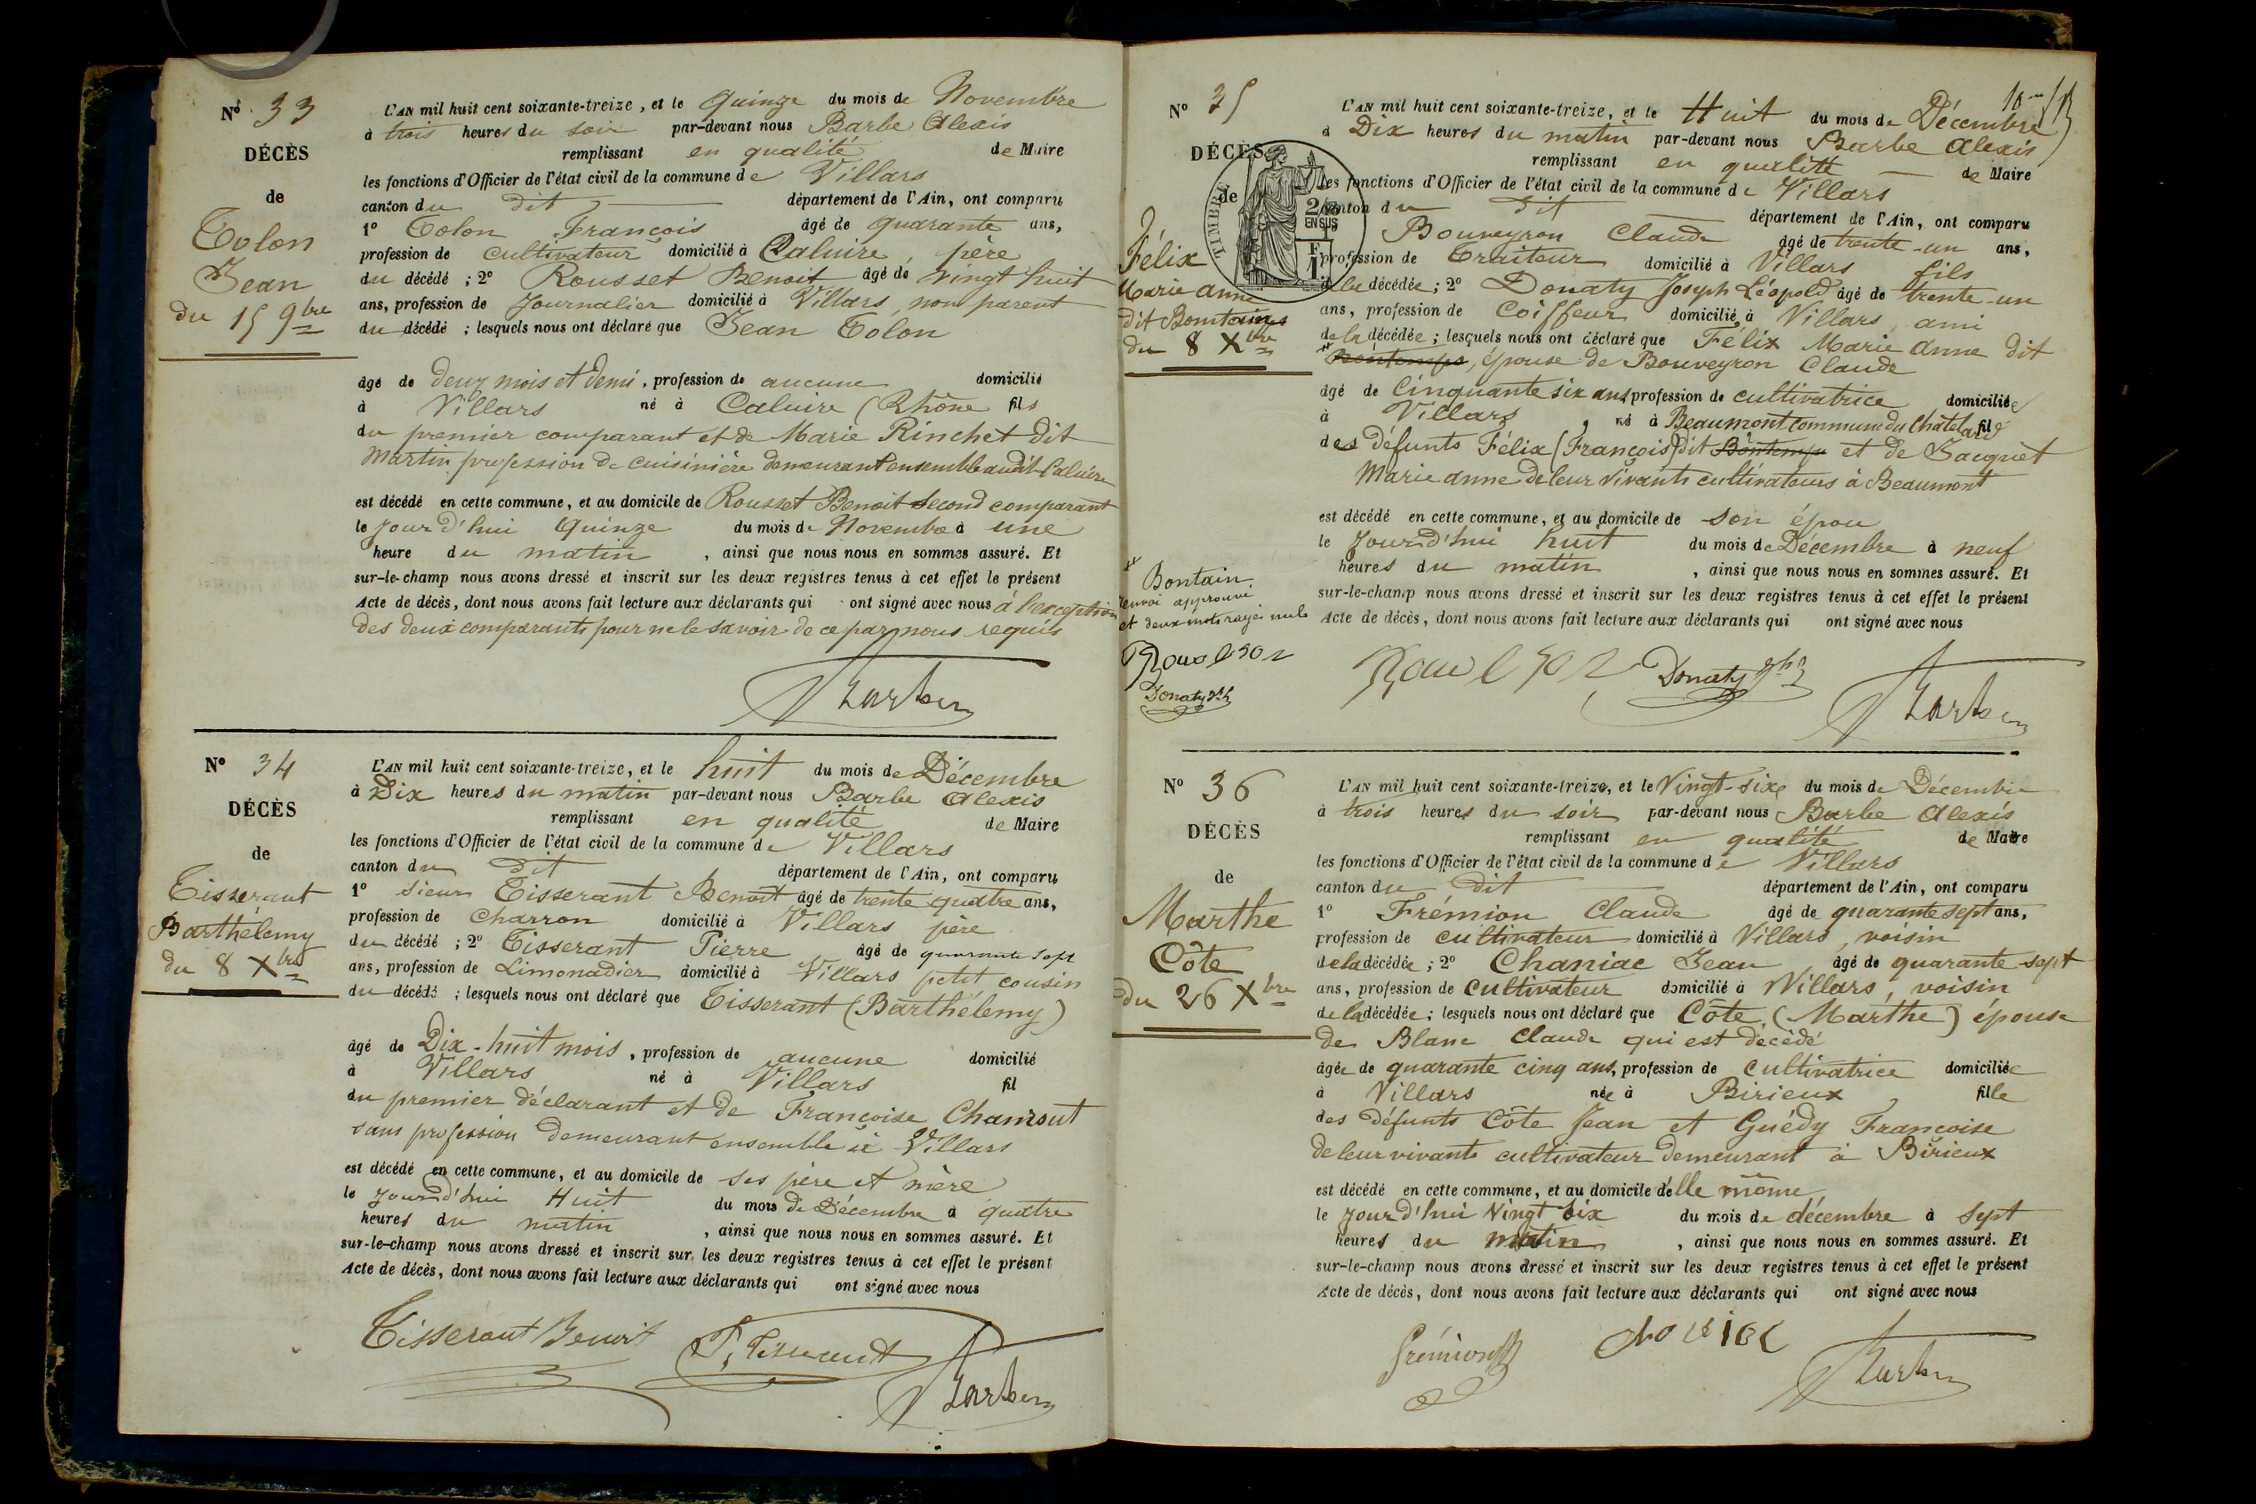 Nº 33
DÉCÈS
de
Tolon
Jean
du 15 9bre
L'AN mil huit cent soixante-treize, et le Quinze du mois de Novembre
à trois heures du soir par-devant nous Barbe Alexis
remplissant en qualité de Maire
les fonctions d'Officier de l'état civil de la commune de Villars
canton du dit département de l'Ain, ont comparu
1º Tolon François âgé de quarante ans,
profession de cultivateur domicilié à Caluire, père
du décédé ; 2º Rousset Benoit âgé de vingt huit
ans, profession de Journalier domicilié à Villars, non parent
du décédé ; lesquels nous ont déclaré que Jean Tolon
âgé de deux mois et demi, profession de aucune domicilié
à Villars né à Caluire (Rhône fils
du premier comparant et de Marie Rinchet dit
Martin profession de cuisinière demeurant ensemble audit Caluire
est décédé en cette commune, et au domicile de Rousset Benoit second comparant
le Jourd'hui Quinze du mois de Novembre à une
heure du matin, ainsi que nous nous en sommes assuré. Et
sur-le-champ nous avons dressé et inscrit sur les deux registres tenus à cet effet le présent
Acte de décès, dont nous avons fait lecture aux déclarants qui ont signé avec nous à l'exception
des deux comparants pour ne le savoir de ce par nous requis
Barbe
Nº 34
DÉCÈS
de
Tisserant
Barthélemy
du 8 Xbre
L'AN mil huit cent soixante-treize, et le huit du mois de Décembre
à Dix heures du matin par-devant nous Barbe Alexis
remplissant en qualité de Maire
les fonctions d'Officier de l'état civil de la commune de Villars
canton du dit département de l'Ain, ont comparu
1º sieur Tisserant Benoit âgé de trente quatre ans,
profession de charron domicilié à Villars père
du décédé ; 2º Tisserant Pierre âgé de quarante sept
ans, profession de Limonadier domicilié à Villars petit cousin
du décédé ; lesquels nous ont déclaré que Tisserant (Barthélemy)
âgé de Dix-huit mois, profession de aucune domicilié
à Villars né à Villars fil
du premier déclarant et de Françoise Chamout
sans profession demeurant ensemble à Villars
est décédé en cette commune, et au domicile de ses père et mère
le Jourd'hui Huit du mois de Décembre à quatre
heures du matin, ainsi que nous nous en sommes assuré. Et
sur-le-champ nous avons dressé et inscrit sur les deux registres tenus à cet effet le présent
Acte de décès, dont nous avons fait lecture aux déclarants qui ont signé avec nous
Tisserant Benoit P. Tisserant Barbe
Nº 35
DÉCÈS
de
TIMBRE
2/10 EN SUS
F 1
Félix
Marie Anne
dit Bontains
du 8 Xbre
L'AN mil huit cent soixante-treize, et le Huit du mois de Décembre
à Dix heures du matin par-devant nous Barbe Alexis
remplissant en qualité de Maire
les fonctions d'Officier de l'état civil de la commune de Villars
canton du dit département de l'Ain, ont comparu
Bouveyron Claude âgé de trente-un ans,
profession de Traiteur domicilié à Villars fils
de la décédée ; 2º Donaty Joseph Léopold âgé de trente-un
ans, profession de Coiffeur domicilié à Villars, ami
de la décédée ; lesquels nous ont déclaré que Félix Marie Anne dit
Bontemps, épouse de Bouveyron Claude
âgé de Cinquante six ans profession de cultivatrice domiciliée
à Villars, né à Beaumont commune du Chatelard fil
des défunts Félix (François) dit Bontemps et de Jacquet
Marie Anne de leur vivants cultivateurs à Beaumont
est décédé en cette commune, et au domicile de son épou
le Jourd'hui huit du mois de Décembre à neuf
heures du matin, ainsi que nous nous en sommes assuré. Et
sur-le-champ nous avons dressé et inscrit sur les deux registres tenus à cet effet le présent
Acte de décès, dont nous avons fait lecture aux déclarants qui ont signé avec nous
Bontain
renvoi approuvé
et deux mots rayés nuls
Donaty
Donaty Barbe
Nº 36
DÉCÈS
de
Marthe
Côte
du 26 Xbre
L'AN mil huit cent soixante-treize, et le Vingt-six du mois de Décembre
à trois heures du soir par-devant nous Barbe Alexis
remplissant en qualité de Maire
les fonctions d'Officier de l'état civil de la commune de Villars
canton du dit département de l'Ain, ont comparu
1º Frémion Claude âgé de quarante sept ans,
profession de cultivateur domicilié à Villars, voisin
de la décédée ; 2º Chaniac Jean âgé de quarante-sept
ans, profession de cultivateur domicilié à Villars, voisin
de la décédée ; lesquels nous ont déclaré que Côte (Marthe) épouse
de Blanc Claude qui est décédé
âgée de quarante cinq ans, profession de cultivatrice domiciliée
à Villars née à Birieux fille
des défunts Côte Jean et Guédy Françoise
de leur vivants cultivateur demeurant à Birieux
est décédé en cette commune, et au domicile d'elle même
le Jourd'hui Vingt six du mois de décembre à sept
heures du matin, ainsi que nous nous en sommes assuré. Et
sur-le-champ nous avons dressé et inscrit sur les deux registres tenus à cet effet le présent
Acte de décès, dont nous avons fait lecture aux déclarants qui ont signé avec nous
Frémion Barbe